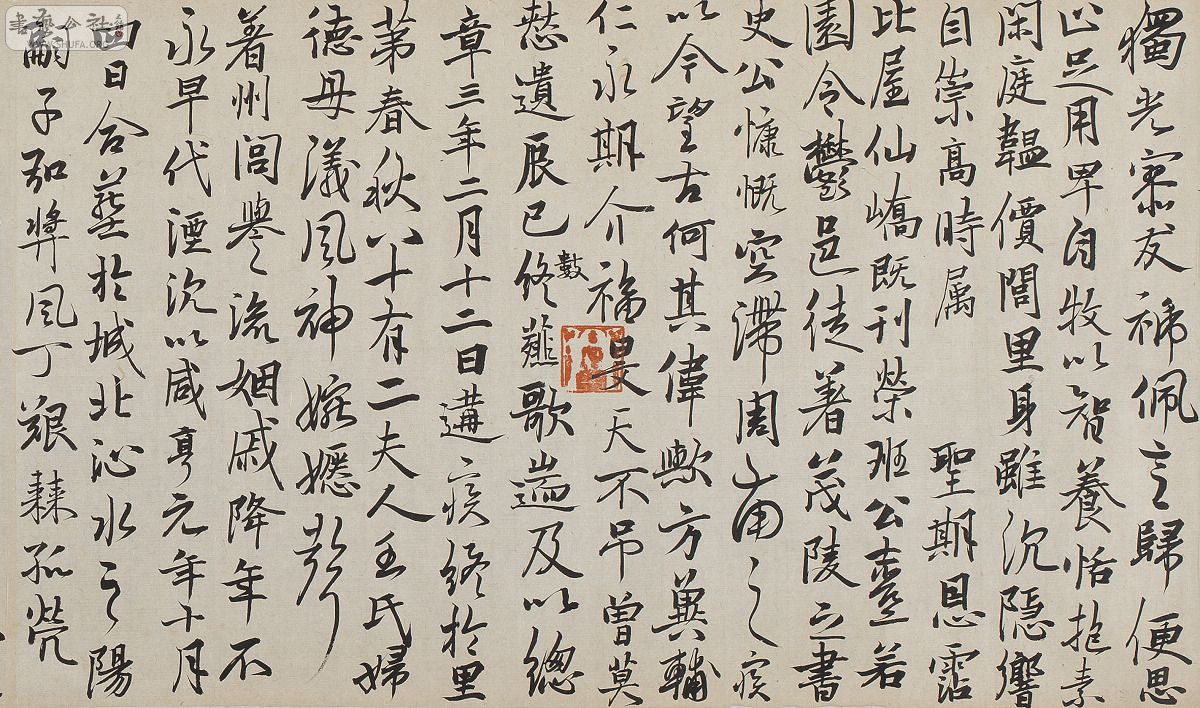 獨光寮友褫佩言歸便思
止足用卑自牧以智養恬抱素
閑庭韞價閭里身雖沉隱響
自崇高時属 聖期恩霑
比屋仙嶠既刊榮班公臺若
園令 邑徒著茂陵之書
史公慷慨空滯周南之疾
以今望古何其偉歟方冀輔
仁永期介福旻天不吊曾莫
憖遺辰巳數終薤歌遄及以總
章三年二月十二日遘疾終於里
第春秋八十有二夫人王氏婦
德母儀風神婉嫕聲
著州閭譽流姻戚降年不
永早代湮沉以咸亨元年十月
四日合葬於城北沁水之陽
嗣子弘獎風丁艱棘孤煢
書法公社
SHUFA.ORG